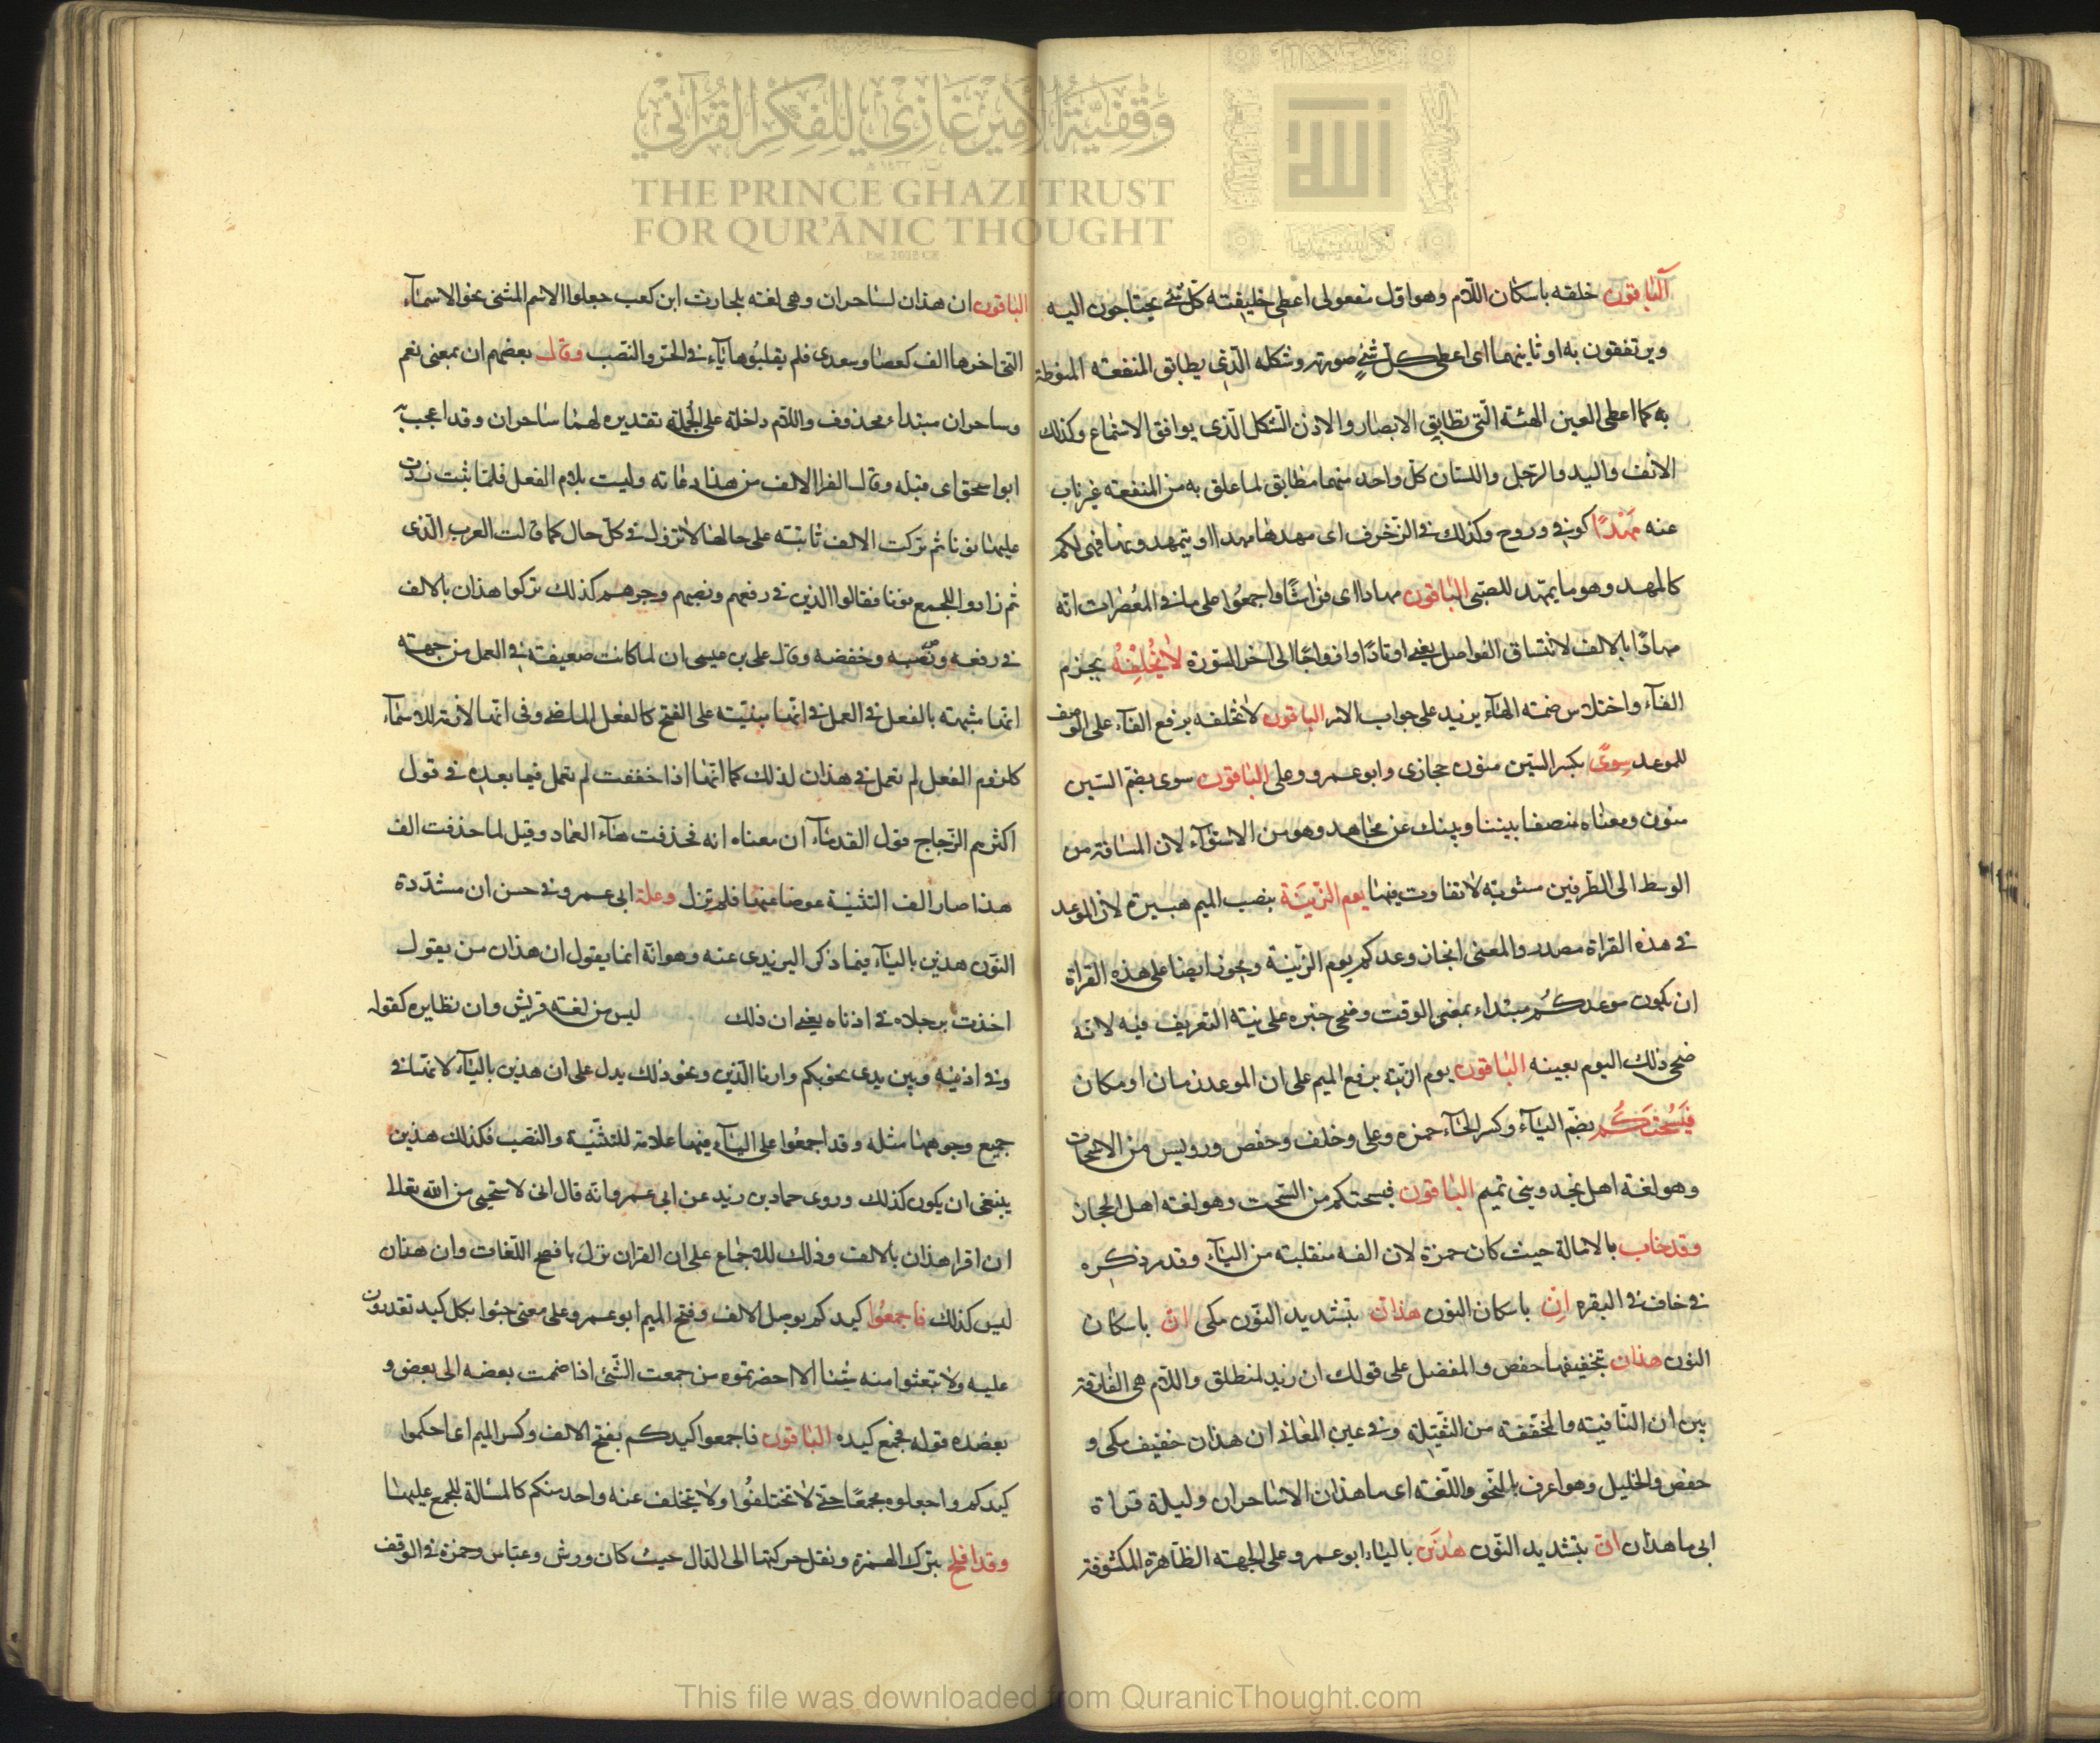 وقفية الأمير غازي للفكر القرآني
THE PRINCE GHAZI TRUST
FOR QUR'ĀNIC THOUGHT
الباقون خلقه باسكان اللام وهو اول مفعولى اعطى خليقته كل شئ يحتاجون اليه
ويرتفقون به او ثانيهما اى اعطى كل شئ صورته وشكله الذى يطابق المنفعة المنوطة
به كما اعطى العين الهئة التى تطابق الابصار والاذن الشكل الذى يوافق الاستماع وكذلك
الانف واليد والرجل واللسان كل واحد منهما مطابق لما علق به من المنفعة غير ناب
عنه مهدًا كوفى وروح وكذلك فى الزخرف اى مهدها مهدا او يتمهدونها فهى لكم
كالمهد وهو ما يمهد للصبى الباقون مهادا اى فراشًا واجمعوا على ما فى المعصرات انه
مهادًا بالالف لاتساق الفواصل يعنى اوتادًا وازواجًا الى اخر السورة لا نخلفه بجزم
الفآء واختلاس ضمة الهآء يزيد على جواب الامر الباقون لا نخلفه برفع الفآء على الوصف
للموعد سوى بكسر السين منون حجازى وابو عمرو وعلى الباقون سوى بضم السين
منون ومعناه منصفا بيننا وبينك عن مجاهد وهو من الاستوآء لان المسافة من
الوسط الى الطرفين مستوية لا تفاوت فيها يوم الزينة بنصب الميم هبيرة لان الموعد
فى هذه القراة مصدر والمعنى انجاز وعدكم يوم الزينة ويجوز ايضا على هذه القراة
ان يكون موعدكم مبتداء بمعنى الوقت وضحى خبره على نية التعريف فيه لانه
ضحى ذلك اليوم بعينه الباقون يوم الزينة برفع الميم على ان الموعد زمان او مكان
فيسحتكم بضم اليآء وكسر الحآء حمزه وعلى وخلف وحفص ورويس من الاسحات
وهو لغة اهل نجد وبنى تميم الباقون فيسحتكم من السحت وهو لغة اهل الحجاز
وقد خاب بالامالة حيث كان حمزة لان الفه منقلبة من اليآء وقد مر ذكره
فى خاف فى البقره ان باسكان النون هذان بتشديد النون مكى ان باسكان
النون هذان بتخفيفها حفص والمفضل على قولك ان زيد لمنطلق واللام هى الفارقة
بين ان النافية والمخففة من الثقيلة وفى عين المعانى ان هذان خفيف مكى و
حفص والخليل وهو اعرف بالنحو واللغة اى ما هذان الا ساحران وليلة قراة
ابى ما هذان ان بتشديد النون هذين باليآء ابو عمرو على الجهة الظاهرة المكشوفة
الباقون ان هذان لساحران وهى لغة بلحارث ابن كعب جعلوا الاسم المثنى نحو الاسمآء
التى اخرها الف كعصا وسعدى فلم يقلبوها يآء فى الجر والنصب وقال بعضهم ان بمعنى نعم
وساحران مبتداء محذوف واللام داخلة على الجملة تقديره لهما ساحران وقد اعجب به
ابو اسحق اى قبله وقال الفرا الالف من هذا دعامة وليست بلام الفعل فلما ثبت زدت
عليها نونا ثم تركت الالف ثابتة على حالها لا تزول فى كل حال كما قالت العرب الذى
ثم زادوا للجمع نونا فقالوا الذين فى رفعهم ونصبهم وجرهم كذلك تركوا هذان بالالف
فى رفعه ونصبه وخفضه وقال على بن عيسى ان لما كانت ضعيفة فى العمل من جهته
انها مشبهة بالفعل فى العمل فى انها مبنية على الفتح كالفعل الماضى وفى انها لازمة للاسمآء
كلزوم الفعل لم تعمل فى هذان لذلك كما انها اذا خففت لم تعمل فيما بعده فى قول
اكثرهم الزجاج قول القدمآء ان معناه انه فحذفت هآء العماد وقيل لما حذفت الف
هذا صار الف التثنية عوضا عنها فلم تزل وعلة ابى عمرو فى حسن ان مشددة
النون هذين باليآء فيما ذكر اليزيدى عنه وهو انه انما يقول ان هذان من يقول
اخذت برجلاه فى اذناه يعنى ان ذلك ليس من لغة قريش وان نظايره كقوله
وفى اذنيه وبين يدى نحوبكم وارنا الذين ونحو ذلك يدل على ان هذين باليآء لانها فى
جميع وجوهها مثله وقد اجمعوا على اليآء فيها علامة للتثنية والنصب فكذلك هذين
ينبغى ان يكون كذلك وروى حماد بن زيد عن ابى عمرو انه قال انى لا ستحيى من الله تعالى
ان اقرا هذان بالالف وذلك للاجماع على ان القران نزل بافصح اللغات وان هذان
ليس كذلك فاجمعوا كيدكم بوصل الالف وفتح الميم ابو عمرو على معنى جيئوا بكل كيد تقدرون
عليه ولا تبقوا منه شيئا الا احضرتموه من جمعت الشئ اذا ضممت بعضه الى بعض و
يعضده قوله فجمع كيده الباقون فاجمعوا كيدكم بفتح الالف وكسر الميم اى احكموا
كيدكم واجعلوه مجمعًا حتى لا تختلفوا ولا يتخلف عنه واحد منكم كالمسالة المجمع عليها
وقد افلح بترك الهمزة ونقل حركتها الى الدال حيث كان ورش وعباس وحمزة فى الوقف
This file was downloaded from QuranicThought.com